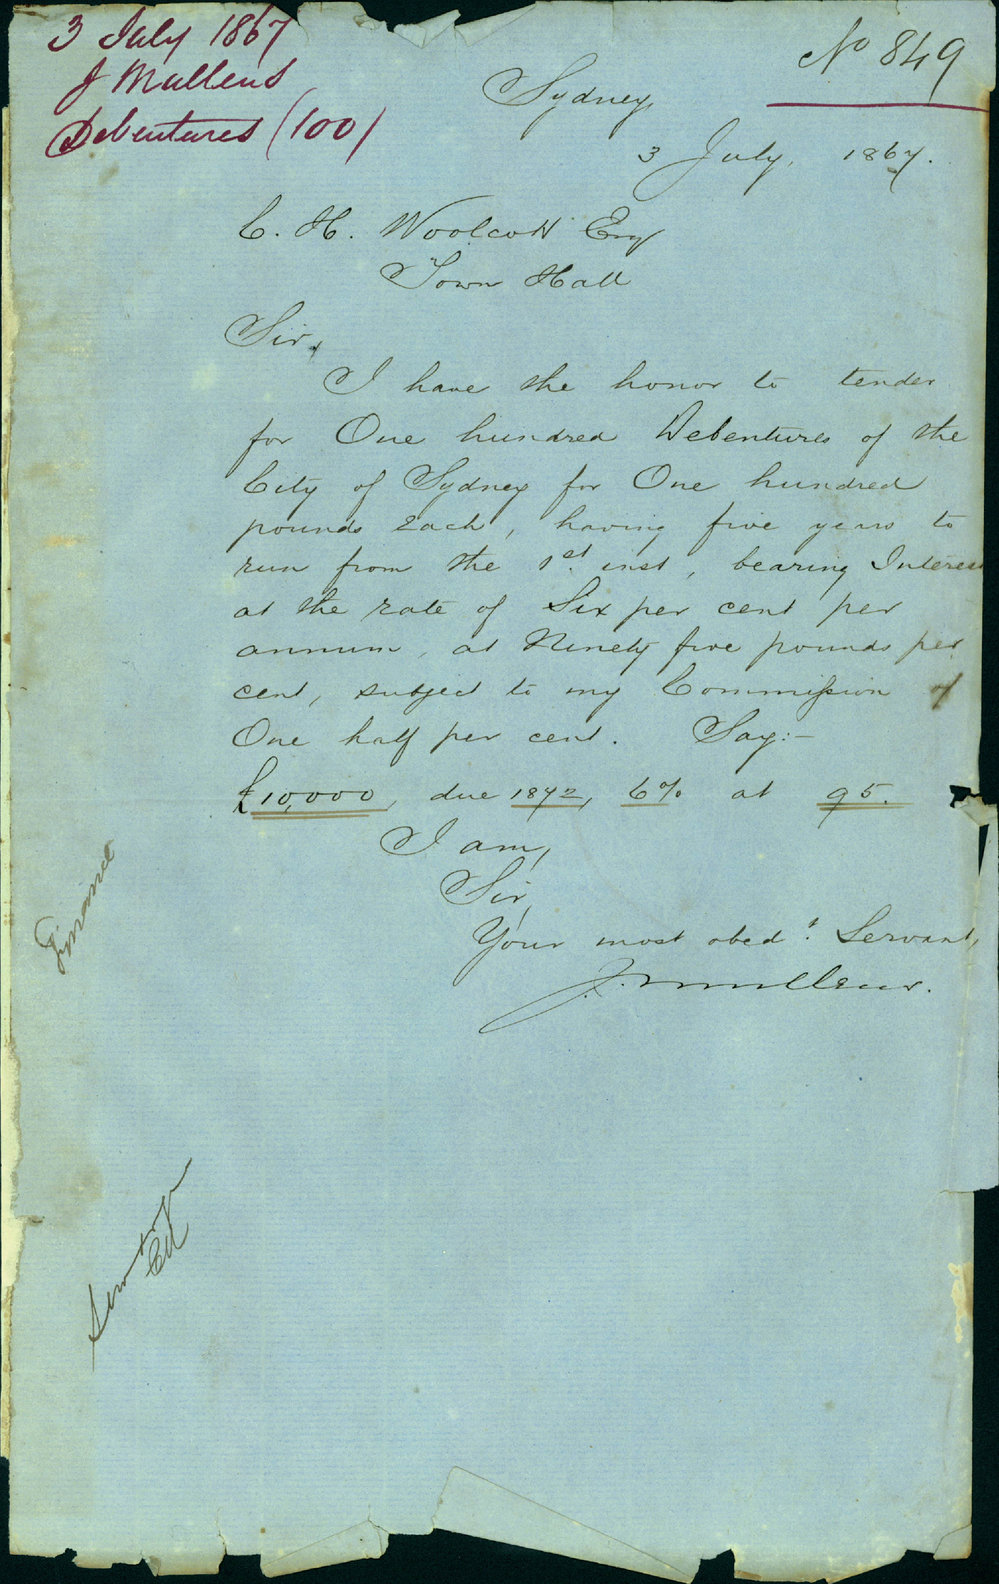 3 July 1867
J Mullens
Debentures (100)
No 849
Sydney
3 July, 1867.
C. H. Woolcott Esq
Town Hall
Sir,
I have the honor to tender
for One hundred Debentures of the
City of Sydney for One hundred
pounds Each, having five years to
run from the 1st. inst, bearing Interest
at the rate of Six per cent per
annum, at Ninety five pounds per
cent, subject to my Commission of
One half per cent. Say:-
£10,000, due 1872, 6% at 95.
I am,
Sir,
Your most obedt. Servant,
J. Mullens.
Finance